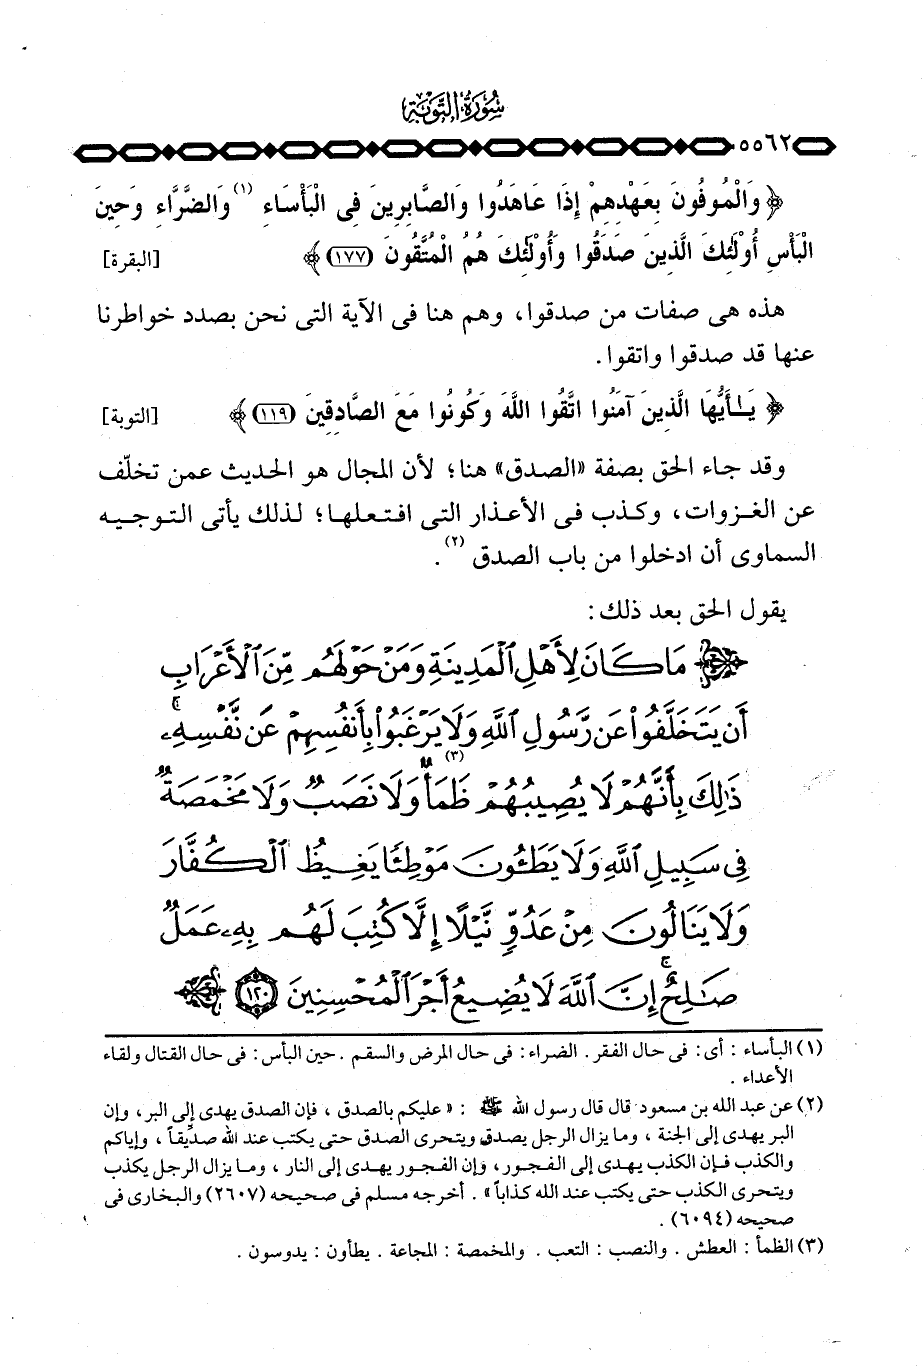 سُورَةُ التَّوْبَةِ
٥٥٦٢
﴿ وَالْمُوفُونَ بِعَهْدِهِمْ إِذَا عَاهَدُوا وَالصَّابِرِينَ فِى الْبَأْسَاءِ (١) وَالضَّرَّاءِ وَحِينَ
الْبَأْسِ أُوْلَٰئِكَ الَّذِينَ صَدَقُوا وَأُوْلَٰئِكَ هُمُ الْمُتَّقُونَ (١٧٧) ﴾ [البقرة]
هذه هى صفات من صدقوا، وهم هنا فى الآية التى نحن بصدد خواطرنا
عنها قد صدقوا واتقوا.
﴿ يَٰأَيُّهَا الَّذِينَ آمَنُوا اتَّقُوا اللَّهَ وَكُونُوا مَعَ الصَّادِقِينَ (١١٩) ﴾ [التوبة]
وقد جاء الحق بصفة «الصدق» هنا؛ لأن المجال هو الحديث عمن تخلّف
عن الغزوات، وكذب فى الأعذار التى افتعلها؛ لذلك يأتى التوجيه
السماوى أن ادخلوا من باب الصدق (٢).
يقول الحق بعد ذلك:
﴿ مَا كَانَ لِأَهْلِ ٱلْمَدِينَةِ وَمَنْ حَوْلَهُم مِّنَ ٱلْأَعْرَابِ
أَن يَتَخَلَّفُوا۟ عَن رَّسُولِ ٱللَّهِ وَلَا يَرْغَبُوا۟ بِأَنفُسِهِمْ عَن نَّفْسِهِۦ ۚ
ذَٰلِكَ بِأَنَّهُمْ لَا يُصِيبُهُمْ ظَمَأٌ (٣) وَلَا نَصَبٌ وَلَا مَخْمَصَةٌ
فِى سَبِيلِ ٱللَّهِ وَلَا يَطَـُٔونَ مَوْطِئًا يَغِيظُ ٱلْكُفَّارَ
وَلَا يَنَالُونَ مِنْ عَدُوٍّ نَّيْلًا إِلَّا كُتِبَ لَهُم بِهِۦ عَمَلٌ
صَٰلِحٌ ۚ إِنَّ ٱللَّهَ لَا يُضِيعُ أَجْرَ ٱلْمُحْسِنِينَ (١٢٠) ﴾
(١) البأساء : أى: فى حال الفقر . الضراء: فى حال المرض والسقم . حين البأس: فى حال القتال ولقاء
الأعداء .
(٢) عن عبد الله بن مسعود قال قال رسول الله ﷺ : « عليكم بالصدق ، فإن الصدق يهدى إلى البر ، وإن
البر يهدى إلى الجنة ، وما يزال الرجل يصدق ويتحرى الصدق حتى يكتب عند الله صديقاً ، وإياكم
والكذب فإن الكذب يهدى إلى الفجور، وإن الفجور يهدى إلى النار ، وما يزال الرجل يكذب
ويتحرى الكذب حتى يكتب عند الله كذاباً » . أخرجه مسلم فى صحيحه (٢٦٠٧) والبخارى فى
صحيحه (٦٠٩٤) .
(٣) الظمأ : العطش . والنصب : التعب . والمخمصة : المجاعة . يطأون : يدوسون .